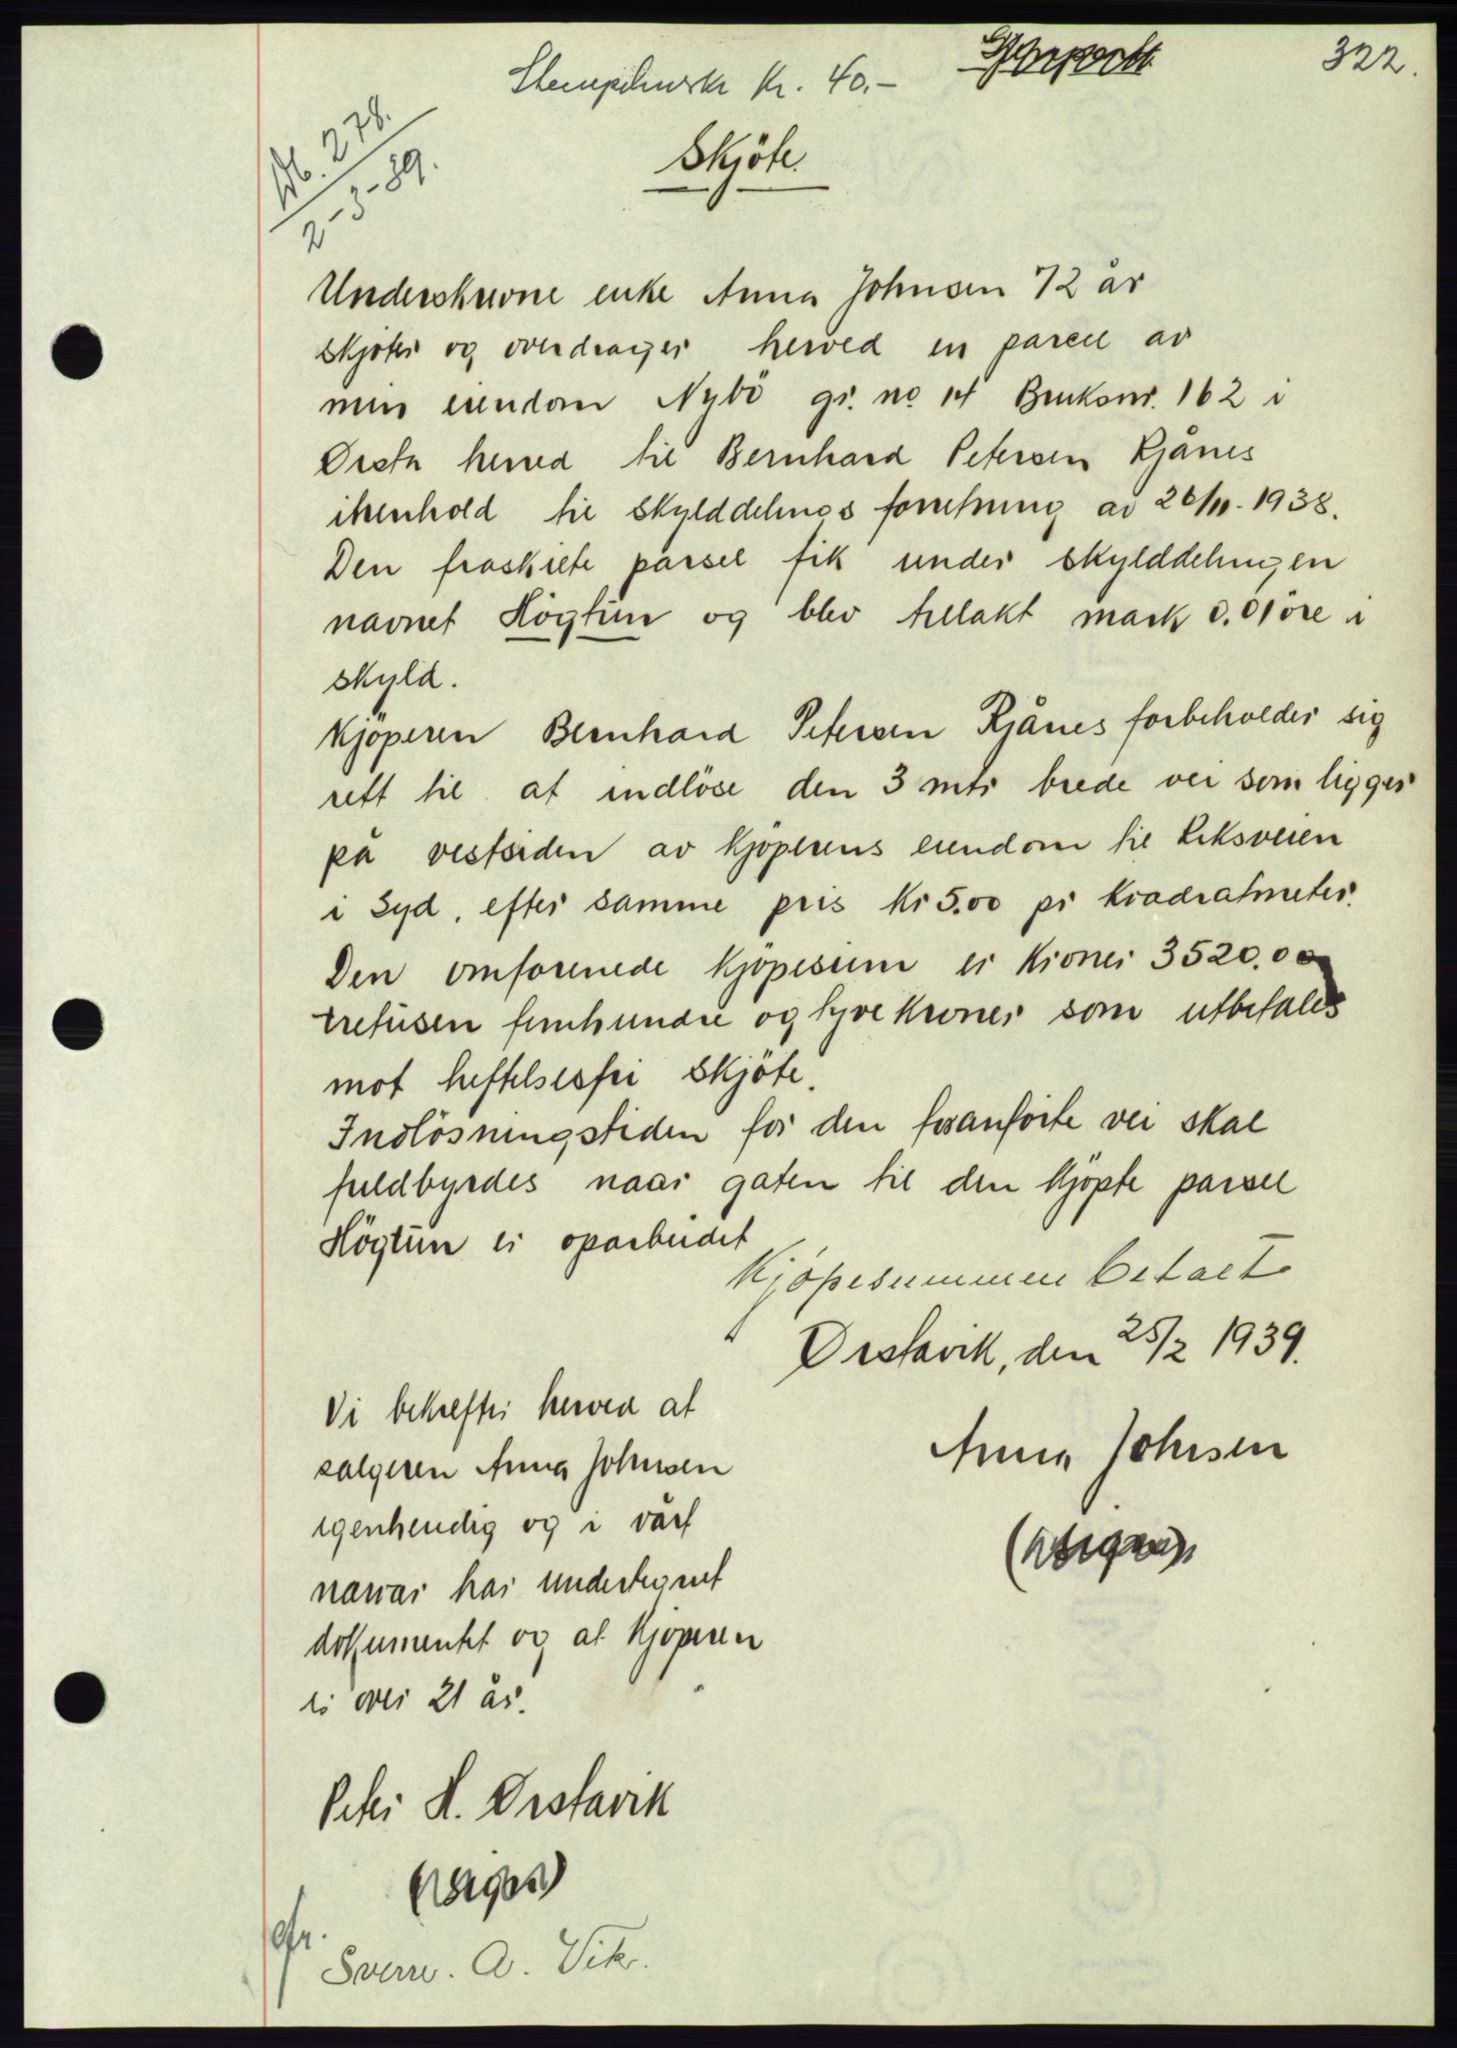 322.
Stempelmerke Kr. 40.-
Nb. 278.
2-3-39.
Skjöte
Underskrevne enke Anna Johnsen 72 år
skjöter og overdrager herved en parcel av
min eiendom Nybö gr. no 14 Bruksnr. 162 i
Örsta herred til Bernhard Petersen Rjånes
ihenhold til skylddelings forretning av 26/11-1938.
Den fraskilte parsel fik under skylddelingen
navnet Högtun og blev tillakt mark 0.01 öre i
skyld.
Kjöperen Bernhard Petersen Rjånes forbeholder sig
rett til at indlöse den 3 mtr brede vei som ligger
på vestsiden av kjöperens eiendom til Riksveien
i Syd, efter samme pris kr 5.00 pr kvadratmeter.
Den omforenede kjöpesum er kroner 3520.00
tretusen femhundre og tyve kroner som utbetales
mot heftelsesfri skjöte.
Indlösningstiden for den foranförte vei skal
fuldbyrdes naar gaten til den kjöpte parsel
Högtun er oparbeidet
Kjöpesummen betalt
Örstavik, den 25/2 1939.
Anna Johnsen
Vi bekrefter herved at
salgeren Anna Johnsen
egenhendig og i vårt
nærvær har undertegnet
dokumentet og at kjöperen
er over 21 år.
Peter H. Örstavik
Sverre. A. Vik.